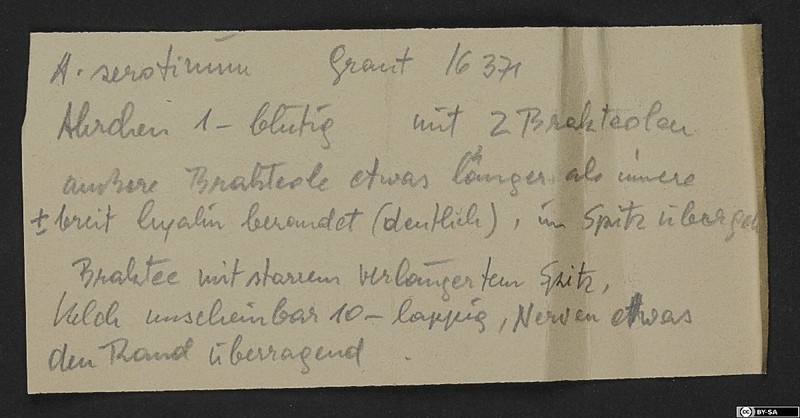 A. serotinum Grant 16371
Ährchen 1-blütig mit 2 Brakteolen
äussere Brakteole etwas länger als innere
± breit hyalin berandet (deutlich), in Spitz übergeh
Braktee mit starrem verlängertem Spitz,
Kelch unscheinbar 10-lappig, Nerven etwas
den Rand überragend.
BY-SA